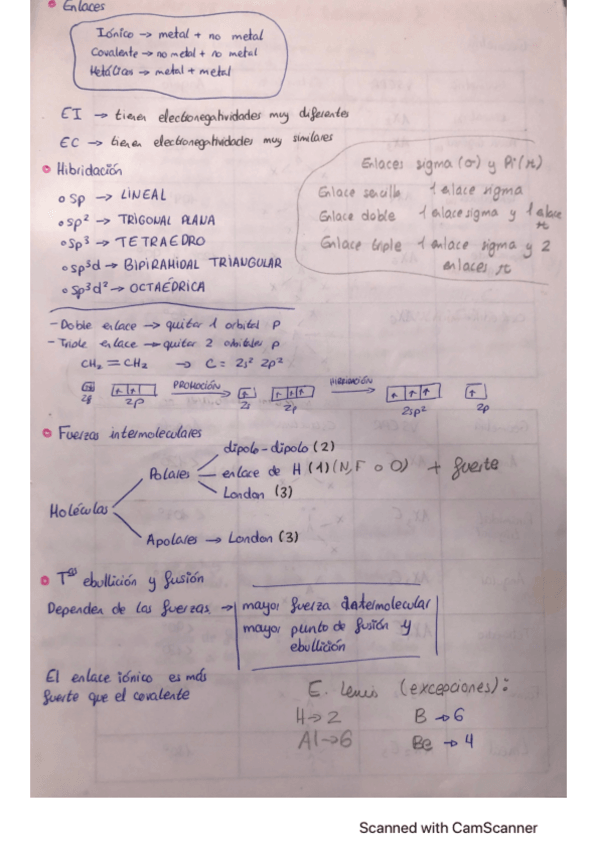 Enlaces
Iónico → metal + no metal
Covalente → no metal + no metal
Metálicos → metal + metal
EI → tienen electronegatividades muy diferentes
EC → tienen electronegatividades muy similares
Enlaces sigma (σ) y Pi (π)
Enlace sencillo 1 enlace sigma
Enlace doble 1 enlace sigma y 1 enlace π
Enlace triple 1 enlace sigma y 2
enlaces π
Hibridación
sp → LINEAL
sp² → TRIGONAL PLANA
sp³ → TETRAEDRO
sp³d → BIPIRAMIDAL TRIANGULAR
sp³d² → OCTAÉDRICA
- Doble enlace → quitar 1 orbital p
- Triple enlace → quitar 2 orbitales p
CH₂ = CH₂ → C = 2s² 2p²
PROMOCIÓN HIBRIDACIÓN
2s 2p 2s 2p 2sp² 2p
Fuerzas intermoleculares
dipolo-dipolo (2)
Polares enlace de H (1) (N, F o O) + fuerte
London (3)
Moléculas
Apolares → London (3)
Tªs ebullición y fusión
Dependen de las fuerzas → mayor fuerza intermolecular
mayor punto de fusión y
ebullición
El enlace iónico es más
fuerte que el covalente
E. Lewis (excepciones):
H → 2 B → 6
Al → 6 Be → 4
Scanned with CamScanner